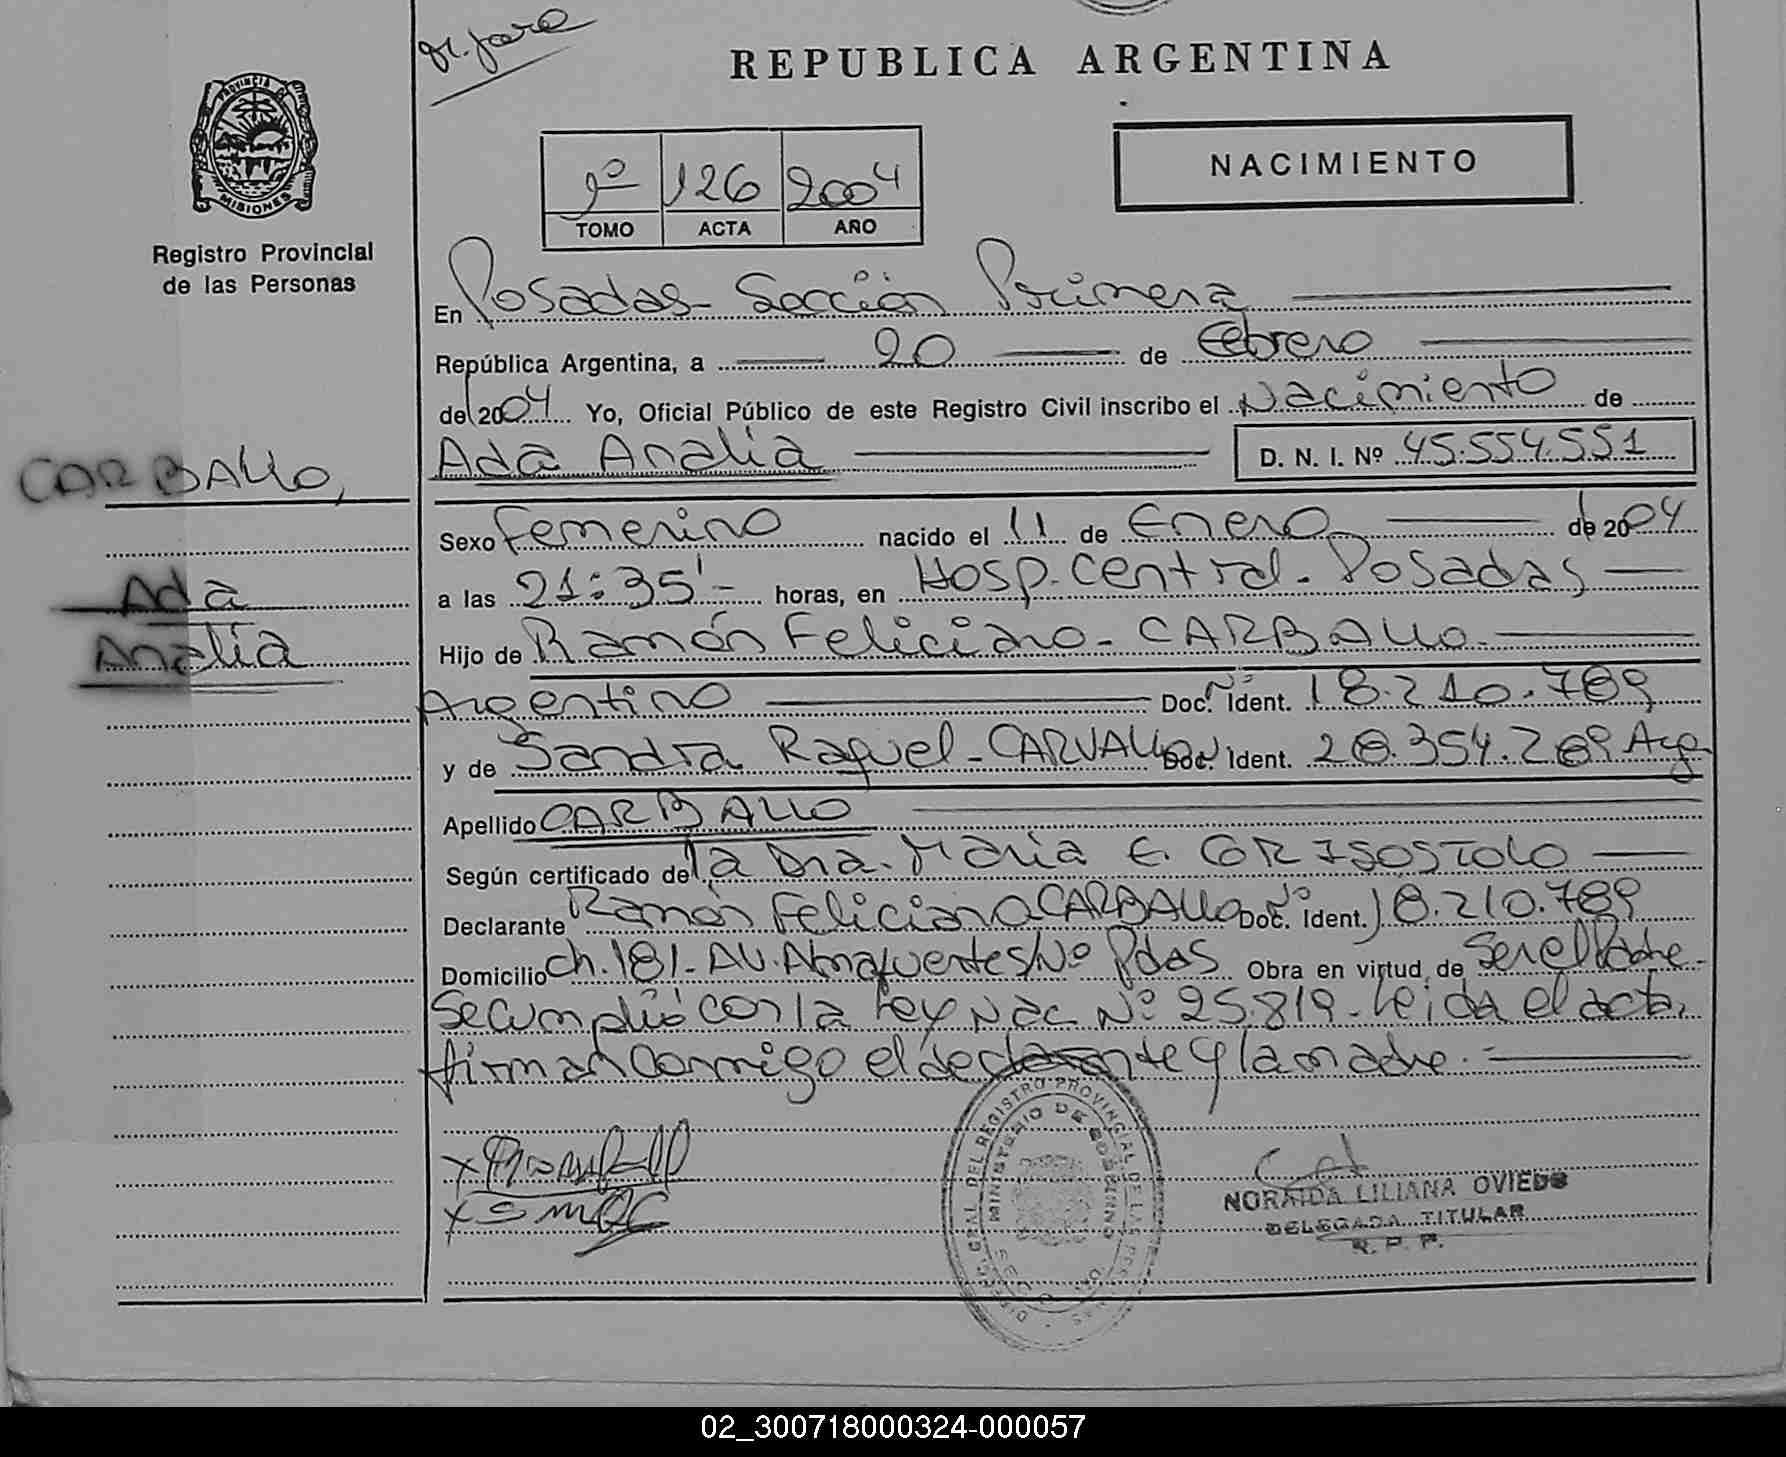 REPUBLICA ARGENTINA
NACIMIENTO
1º 126 2004
TOMO ACTA AÑO
PROVINCIA DE
MISIONES
Registro Provincial
de las Personas
En Posadas - Sección Primera
República Argentina, a 20 de Febrero
de 2004 Yo, Oficial Público de este Registro Civil inscribo el Nacimiento de
Ada Analia D. N. I. Nº 45.554.551
CARBALLO,
Ada
Analia
Sexo Femenino nacido el 11 de Enero de 2004
a las 21:35'- horas, en Hosp. Central. Posadas
Hijo de Ramón Feliciano - CARBALLO
Argentino Doc. Nº Ident. 18.210.789
y de Sandra Raquel - CARVALLO Doc. Nº Ident. 20.354.269 Arg
Apellido CARBALLO
Según certificado de la Dra. Maria E. CORISOSTOLO
Declarante Ramón Feliciano CARBALLO Doc. Nº Ident. 18.210.789
Domicilio Ch. 181 - AV. Almafuerte S/Nº Pdas Obra en virtud de Ser el Padre -
Se cumplió con la Ley Nac Nº 25.819 - Leida el acta,
firman conmigo el declarante y la madre. -
DIREC. GRAL. DEL REGISTRO PROVINCIAL DE LAS PERSONAS
MINISTERIO DE GOBIERNO
NORAIDA LILIANA OVIEDO
DELEGADA TITULAR
R. P. P.
02_300718000324-000057